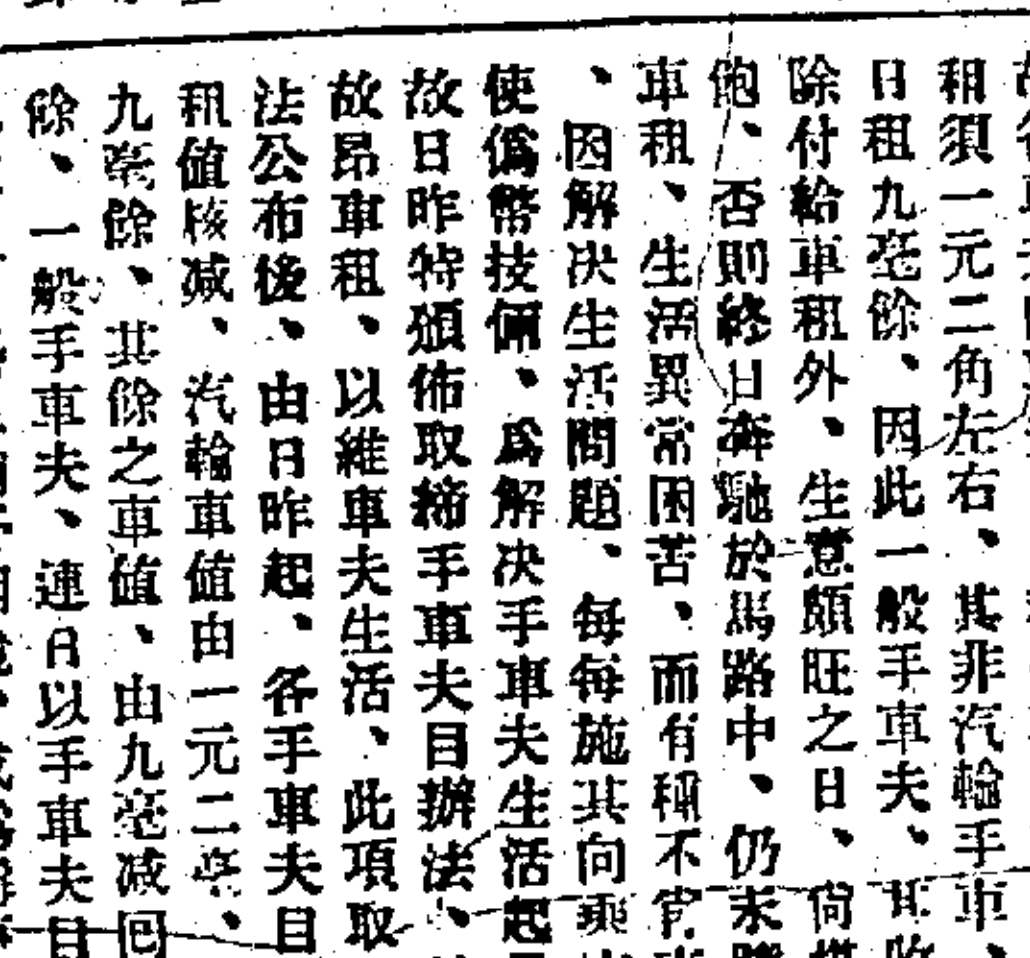 租須一元二角左右、其非汽輪手車、
日租九毫餘、因此一般手車夫、其收
除付給車租外、生意頗旺之日、尙
飽、否則終日奔馳於馬路中、仍未
車租、生活異常困苦、而有稱不
、因解决生活問題、每每施其向乘
使僞幣技倆、爲解决手車夫生活起
故日昨特頒佈取締手車夫目辦法、
故昂車租、以維車夫生活、此項取
法公布後、由日昨起、各手車夫目
租值核减、汽輪車值由一元二毫、
九毫餘、其餘之車值、由九毫减囘
餘、一般手車夫、連日以手車夫目